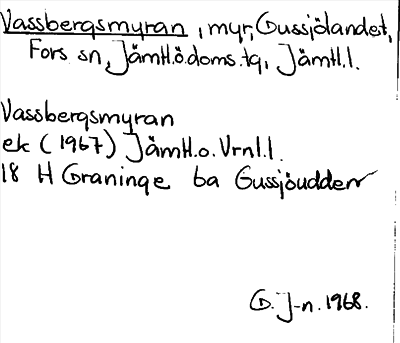 Vassbergsmyran, myr, Gussjölandet,
Fors sn, Jämtl.ö.doms.tg, Jämtl.l.
Vassbergsmyran
ek (1967) Jämtl.o. Vrnl.l.
18 H Graninge 6a Gussjöudden
G. J-n. 1968.